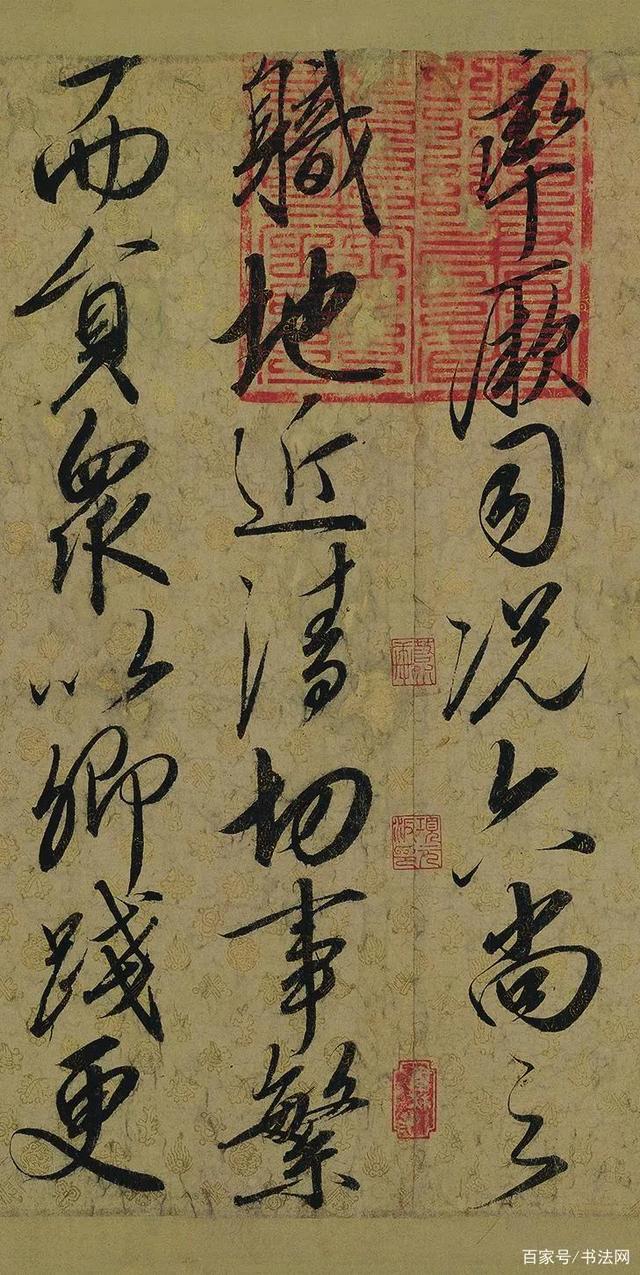 率厥司况六尚之
職地近清切事繁
而員衆以卿踐更
百家号/书法网